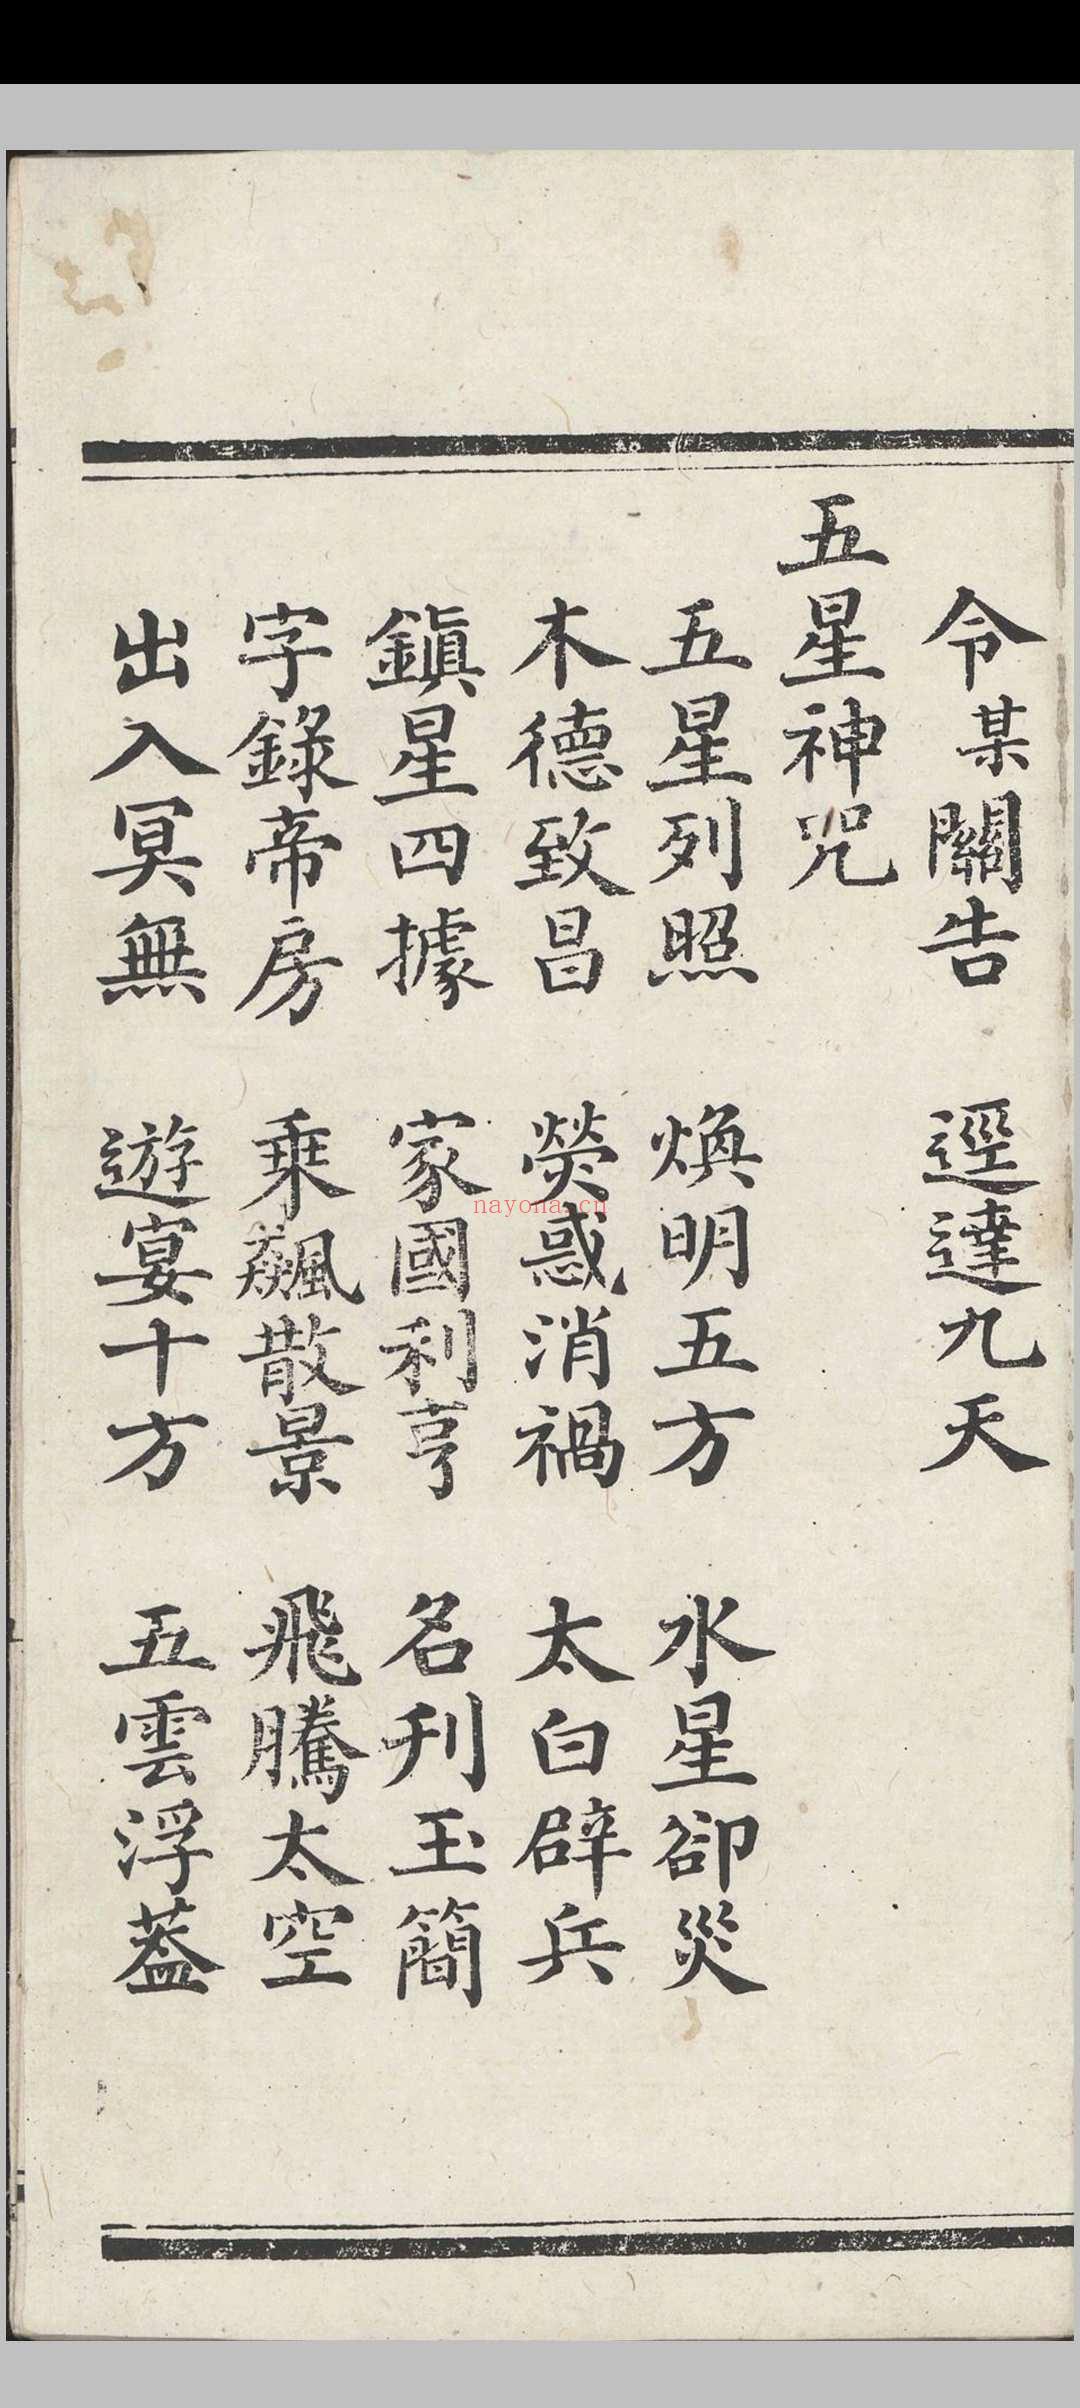 令某關告　逕達九天
五星神咒
五星列照　煥明五方　水星卻災
木德致昌　熒惑消禍　太白辟兵
鎮星四據　家國利亨　名刋玉簡
字錄帝房　乗飇散景　飛騰太空
出入冥無　遊宴十方　五雲浮葢
nayona.cn